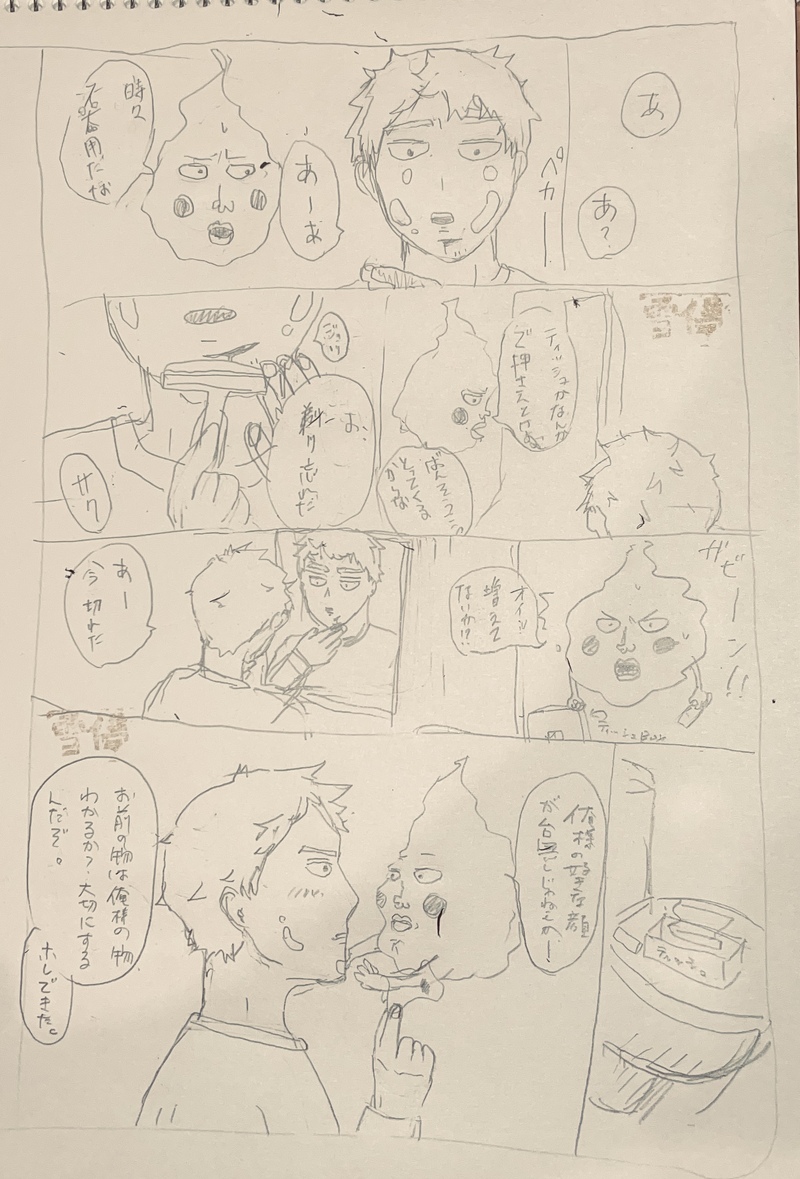 あ
あ?
ペカー
あーあ
時々
不器用だな
ティッシュかなんか
で押さえてけよ
ばんそうこう
とってくる
からな
ジョリ
お、
剃り忘れた
サク
ガビーン!!
オイッ!
増えて
ないか!?
ティッシュBOX
あー
今切れた
ティッシュ
俺様の好きな顔
が台無しじゃねぇかー
お前の物は俺様の物
わかるか?大切にする
んだぞ。
ホレできた。